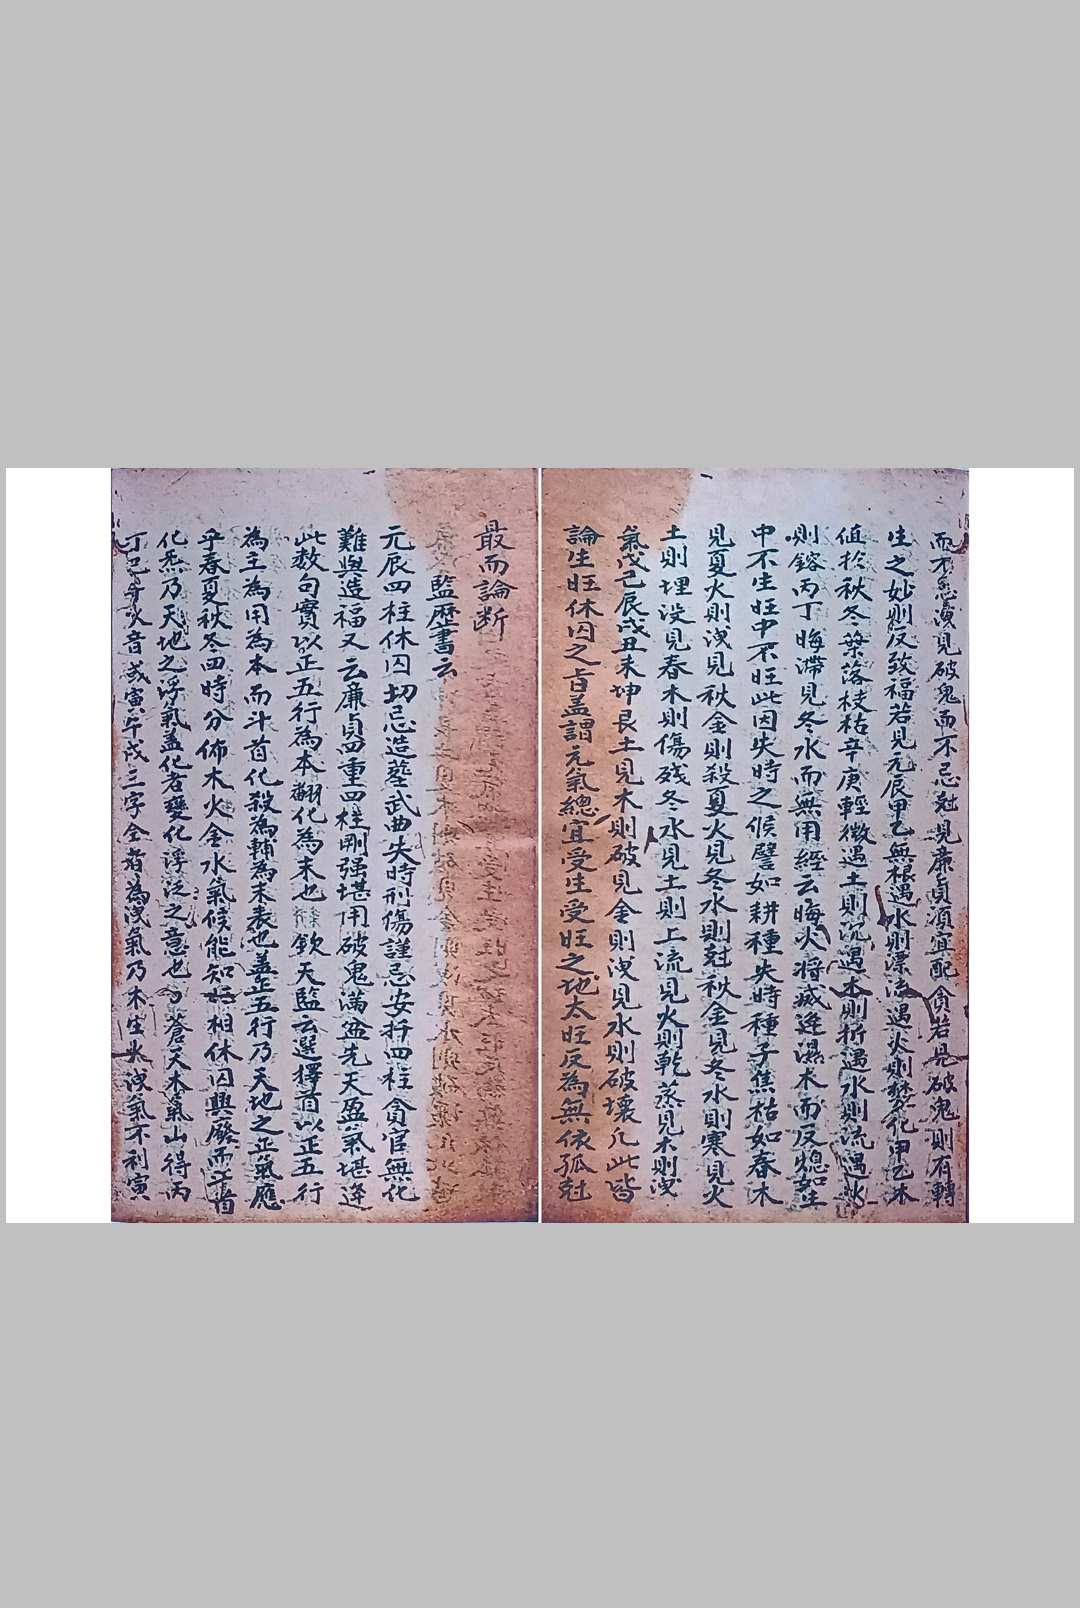 而不忌瀆見破鬼而不忌尅見廉貞須宜配貪若見破鬼則有轉
生之妙則反致福若見元辰甲乙無根遇水則漂流遇火則焚化甲乙木
值於秋冬葉落枝枯辛庚輕微遇土則沉遇木則折遇水則流遇火
則鎔丙丁晦滯見冬水而無用經云晦火将威逢濕木而反熄如生
中不生旺中不旺此因失時之候譬如耕種失時種子焦枯如春木
見夏火則洩見秋金則殺夏火見冬水則尅秋金見冬水則寒見火
土則埋没見春木則傷殘冬水見土則上流見火則乾蒸見木則洩
氣戊己辰戌丑未坤艮土見木則破見金則洩見水則破壞凡此皆
論生旺休囚之旨盖謂元氣總宜受生受旺之地太旺反為無依孤尅
最而論断
監歷書云
元辰四柱休囚切忌造塟武曲失時刑傷謹忌安扦四柱貪官無化
難與造福又云廉貞重重四柱剛强堪用破鬼滿盆先天盈氣堪逢
此数句實以正五行為本翻化為末也欽天監云選擇首以正五行
為主為用為本而斗首化殺為輔為末裁也盖正五行乃天地之正氣應
乎春夏秋冬四時分佈木火金水氣候能知旺相休囚興廢而斗首
化炁乃天地之浮氣盖化者變化浮泛之意也蒼天木氣山得丙
丁巳午火音或寅午戌三字全者為洩氣乃木生火洩氣不利寅